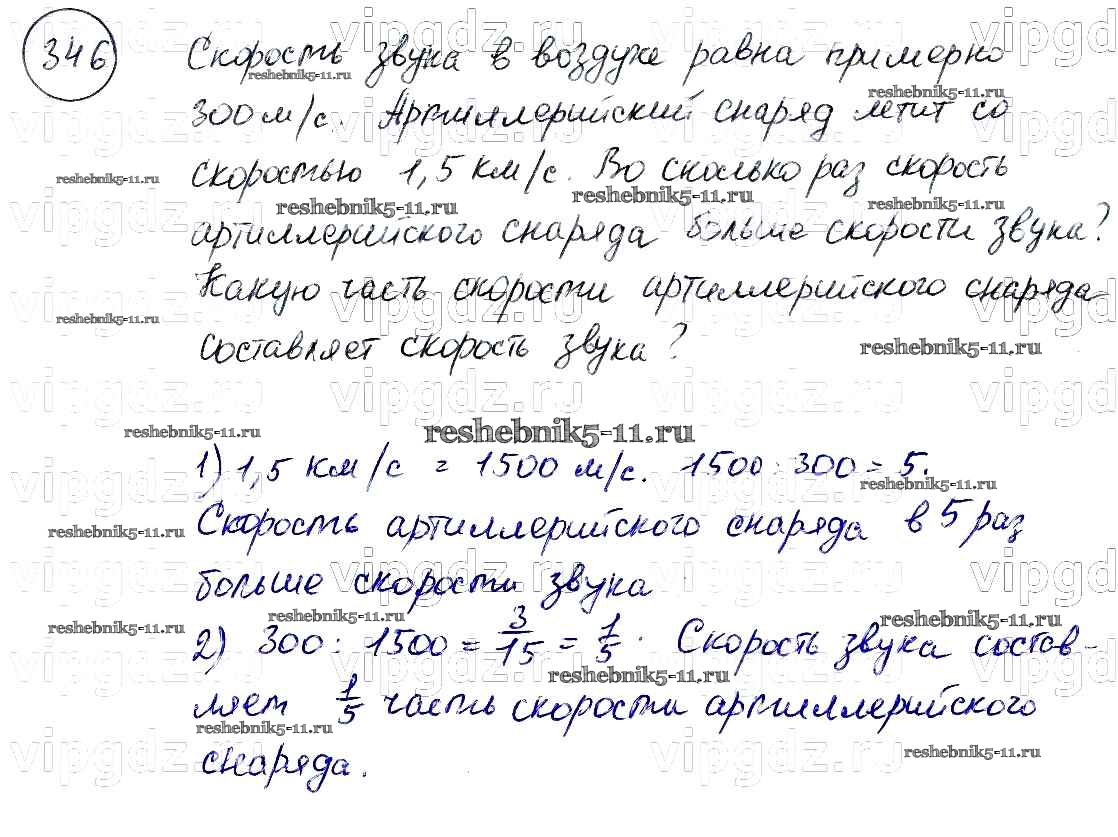 346 Скорость звука в воздухе равна примерно
300 м/с. Артиллерийский снаряд летит со
скоростью 1,5 км/с. Во сколько раз скорость
артиллерийского снаряда больше скорости звука?
Какую часть скорости артиллерийского снаряда
составляет скорость звука?
1) 1,5 км/с = 1500 м/с. 1500 : 300 = 5.
Скорость артиллерийского снаряда в 5 раз
больше скорости звука
2) 300 : 1500 = 3/15 = 1/5. Скорость звука состав-
ляет 1/5 часть скорости артиллерийского
снаряда.
reshebnik5-11.ru
vipgdz.ru